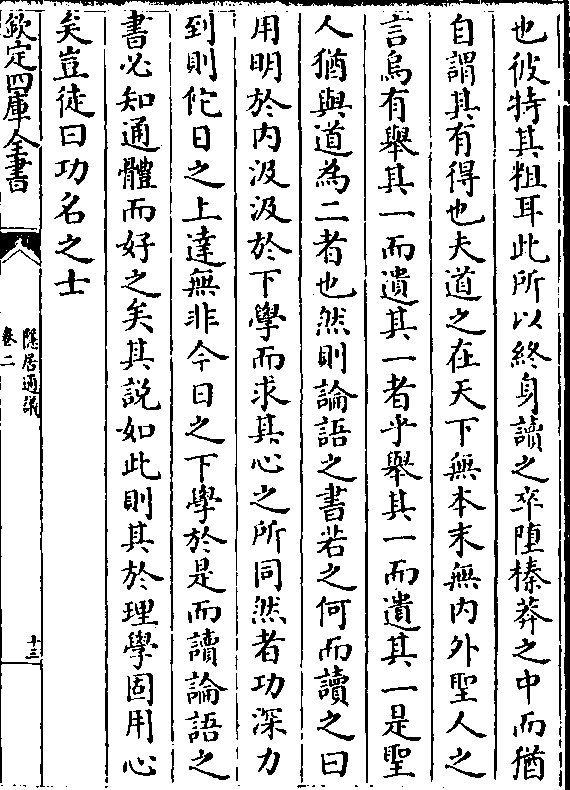 也彼特其粗耳此所以終身讀之卒墮榛莽之中而猶
自謂其有得也夫道之在天下無本末無内外聖人之
言烏有舉其一而遺其一者乎舉其一而遺其一是聖
人猶與道為二者也然則論語之書若之何而讀之曰
用明於内汲汲於下學而求其心之所同然者功深力
到則佗日之上達無非今日之下學於是而讀論語之
書必知通體而好之矣其説如此則其於理學固用心
矣豈徒曰功名之士
欽定四庫全書
隠居通議
卷二
十三